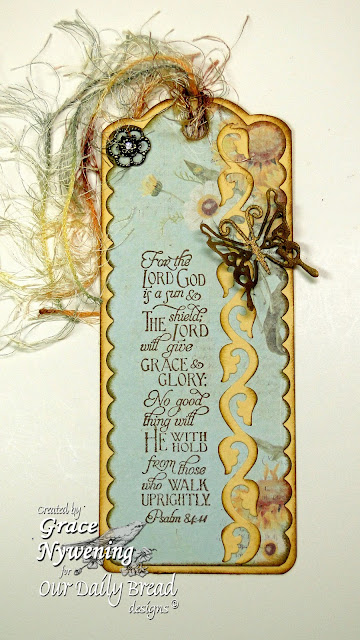 For the
LORD GOD
is a sun &
THE shield;
LORD
will give
GRACE &
GLORY:
No good
thing will
HE WITH
HOLD
from those
who WALK
UPRIGHTLY.
Psalm 84:11
Created by
Grace
Nywening
for
Our Daily Bread
designs©